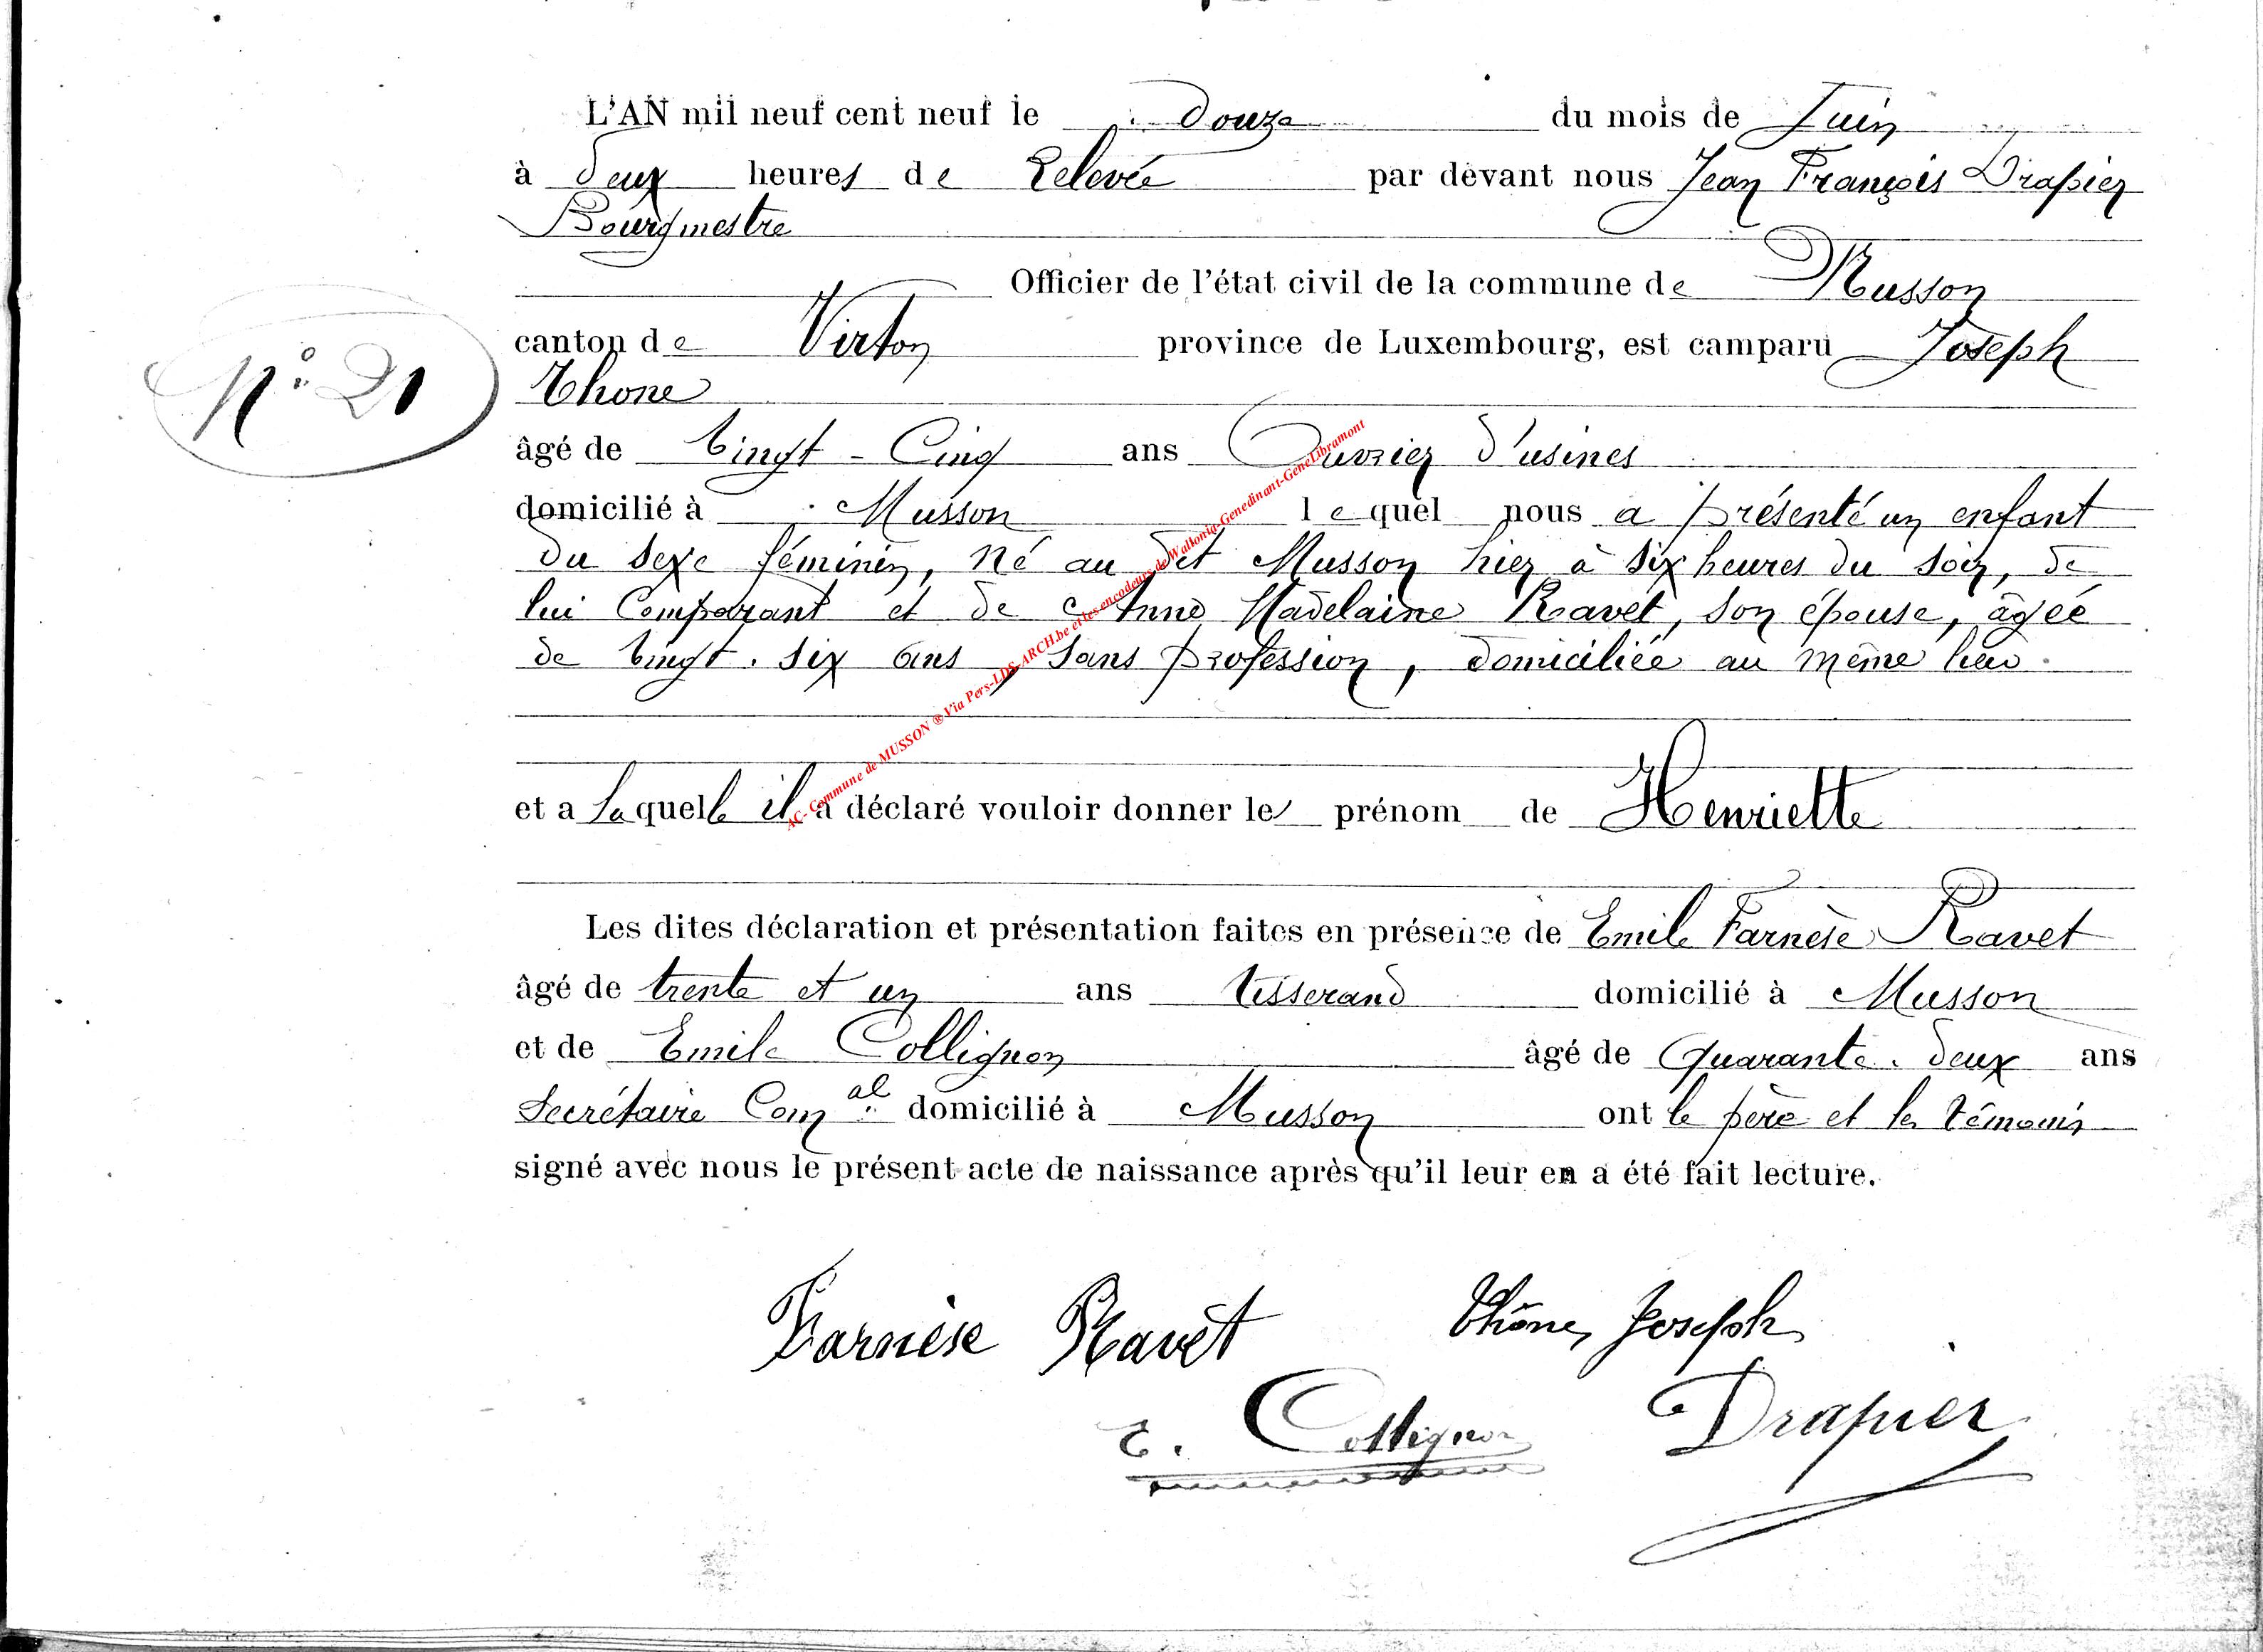 L'AN mil neuf cent neuf le Douze du mois de Juin
à Deux heures de Relevée par devant nous Jean François Drapier
Bourgmestre
Officier de l'état civil de la commune de Musson
canton de Virton province de Luxembourg, est camparu Joseph
Thone
N° 21
âgé de Vingt-Cinq ans Ouvrier d'usines
domicilié à Musson lequel nous a présenté un enfant
du sexe féminin, né au dit Musson hier à six heures du soir, de
lui Comparant et de Anne Madelaine Ravet, son épouse, âgée
de vingt-six ans, sans profession, domiciliée au même lieu.
et a laquelle il a déclaré vouloir donner le prénom de Henriette
AC- Commune de MUSSON ® Via Pers-LDS-ARCH.be et les encodeurs de Wallonia-Genedinant-GeneLibramont
Les dites déclaration et présentation faites en présence de Emile Farnèse Ravet
âgé de trente et un ans tisserand domicilié à Musson
et de Emile Collignon âgé de Quarante-deux ans
Secrétaire Com al domicilié à Musson ont le père et les témoins
signé avec nous le présent acte de naissance après qu'il leur en a été fait lecture.
Farnèse Ravet Thône Joseph
E. Collignon Drapier